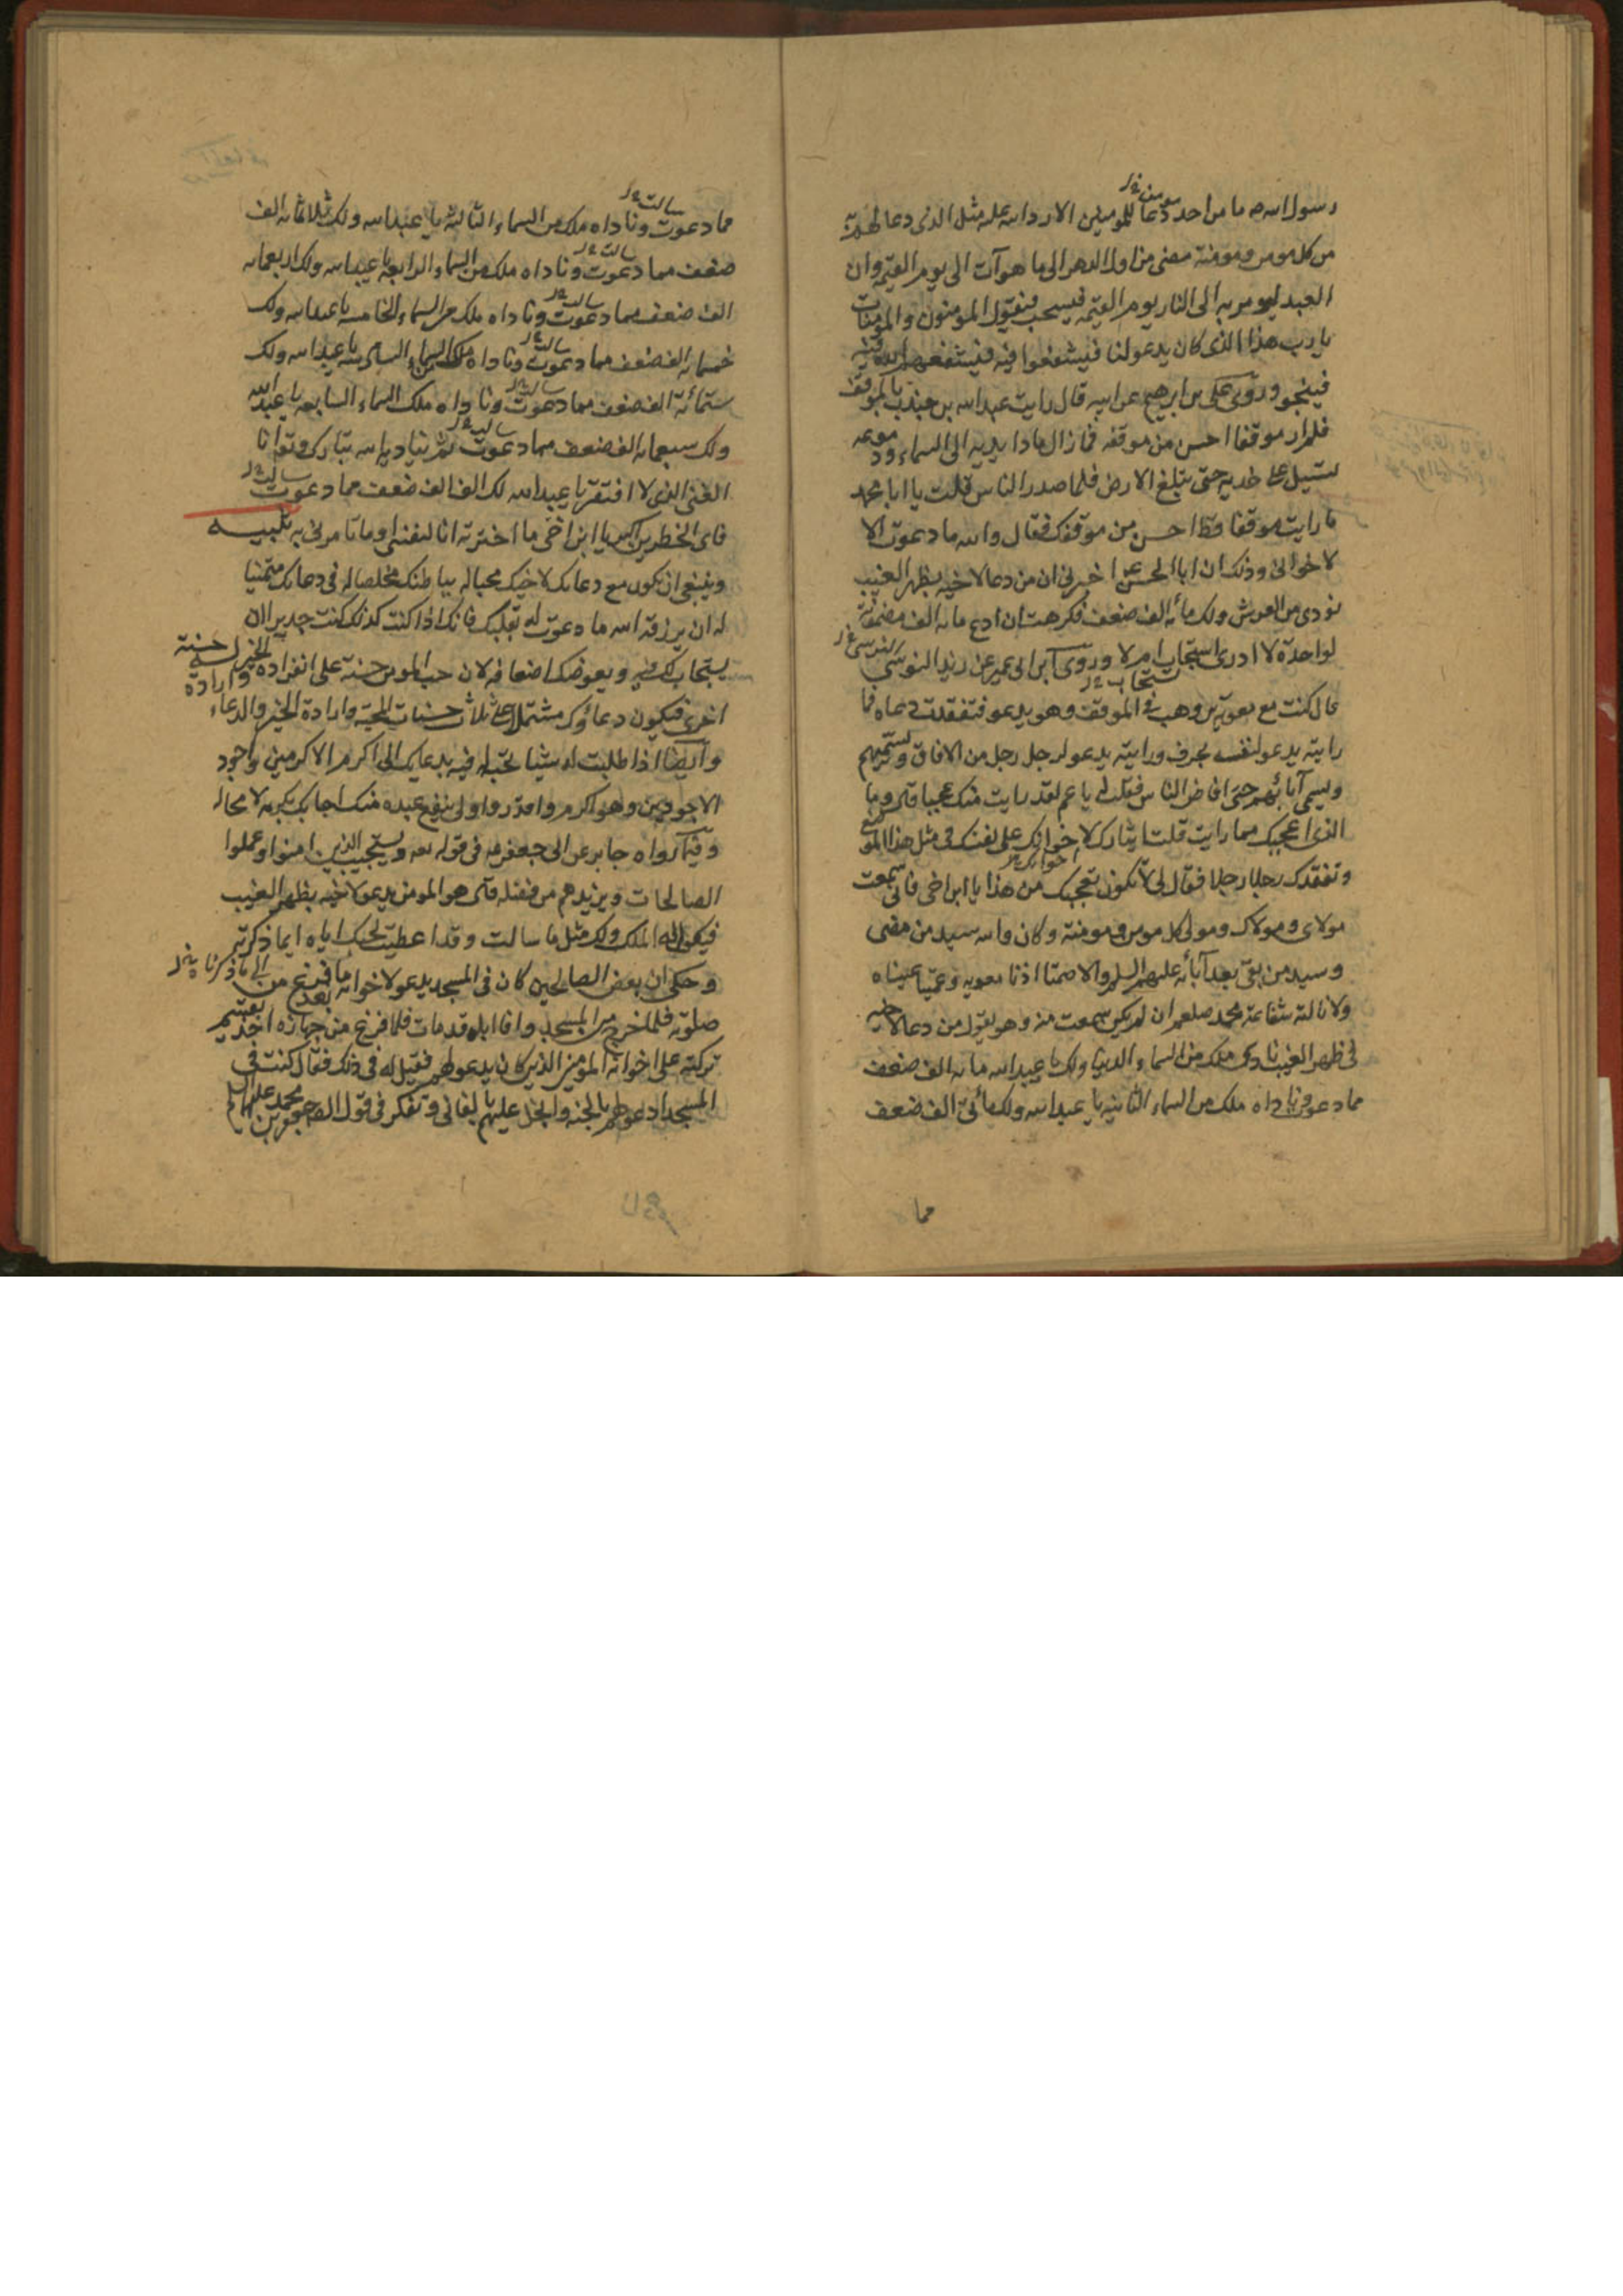 رسول الله ص ما من احد دعا للمومنين الا رد الله عليه مثل الذى دعا لهم به
من كل مومن ومومنة مضى من اول الدهر الى ما هو آت الى يوم القيمة وان
العبد ليومر به الى النار يوم القيمة فيسحب فيقول المومنون والمومنات
يا رب هذا الذى كان يدعو لنا فيشفعوا فيه فيشفعهم الله فيه
فينجو وروى على بن ابرهيم عن ابيه قال رايت عبد الله بن جندب بالموقف
فلم ار موقفا احسن من موقفه فما زال مادا يديه الى السماء ودموعه
تسيل على خديه حتى تبلغ الارض فلما صدر الناس قلت يا ابا محمد
ما رايت موقفا قط احسن من موقفك فقال والله ما دعوت الا
لاخوانى وذلك ان ابا الحسن ع اخبرنى ان من دعا لاخيه بظهر الغيب
نودى من العرش ولك مأية الف ضعف فكرهت ان ادع مايه الف مضمونة
لواحدة لا ادرى استجاب ام لا وروى ابن ابى عمير عن زيد النرسى
قال كنت مع معوية بن وهب فى الموقف وهو يدعو فتفقدت دعاه فما
رايته يدعو لنفسه بحرف ورايته يدعو لرجل رجل من الافاق ويسميهم
ويسمى آبائهم حتى افاض الناس فقلت له يا عم لقد رايت منك عجبا قال وما
الذى اعجبك مما رايت قلت ايثارك لاخوانك على نفسك فى مثل هذا الموضع
وتفقدك رجلا رجلا فقال لى لا تكون تعجبك من هذا يا ابن اخى فانى سمعت
مولاى ومولاك ومولى كل مومن ومومنة وكان والله سيد من مضى
وسيد من بقى بعد آبائه عليهم السلم والا صمتا اذنا معويه وعميتا عيناه
ولا نالته شفاعة محمد صلعم ان لم يكن سمعت منه وهو يقول من دعا لاخيه
فى ظهر الغيب نادى ملك من السماء الدنيا ولك يا عبد الله مايه الف ضعف
مما دعوت وناداه ملك من السماء الثانيه يا عبد الله ولك مائتى الف ضعف
مما
مما دعوت وناداه ملك من السماء الثالثه يا عبد الله ولك ثلاثمائه الف
ضعف مما دعوت وناداه ملك من السماء الرابعه يا عبد الله ولك اربعمايه
الف ضعف مما دعوت وناداه ملك من السماء الخامسه يا عبد الله ولك
خمسمايه الف ضعف مما دعوت وناداه ملك من السماء السادسه يا عبد الله ولك
ستمائة الف ضعف مما دعوت وناداه ملك السماء السابعه يا عبد الله
ولك سبعمايه الف ضعف مما دعوت ثم يناديه الله تبارك وتع انا
الغنى الذى لا افتقر يا عبد الله لك الف الف ضعف مما دعوت
فاى الخطرين اكبر يا ابن اخى ما اخترته انا لنفسى او ما تامرنى به تنبيه
وينبغى ان تكون مع دعائك لاخيك محبا له بباطنك مخلصا له فى دعائك متمنيا
له ان يرزقه الله ما دعوت له بقلبك فانك اذا كنت كذلك كنت جديرا ان
يستجاب لك فيه ويعوضك اضعافه لان حب المومن حسنة على انفراده وارادة الخير له حسنة
اخرى فيكون دعاؤك مشتملا على ثلاث حسنات المحبة وارادة الخير والدعاء
وايضا اذا طلبت له شيئا تحبه له فيه بدعائك الى اكرم الاكرمين واجود
الاجودين وهو اكرم واقدر واولى بنفع عبده منك اجابك بكرمه لا محاله
وفيما رواه جابر عن ابى جعفر ع فى قوله تعه ويستجيب الذين امنوا وعملوا
الصالحات ويزيدهم من فضله قال هو المومن يدعو لاخيه بظهر الغيب
فيقول له الملك ولك مثل ما سالت وقد اعطيت لحبك اياه ايما ذكرته
وحكى ان بعض الصالحين كان فى المسجد يدعو لاخوانه بعد ما فرغ من
صلوته فلما خرج من المسجد وافا اباه قد مات فلما فرغ من جهازه اخذ يقسم
تركته على اخوانه المومنين الذين كان يدعو لهم فقيل له فى ذلك فقال كنت فى
المسجد ادعو لهم بالجنة وابخل عليهم بالفانى وتفكر فى قول الص جعفر بن محمد عليهما السلم